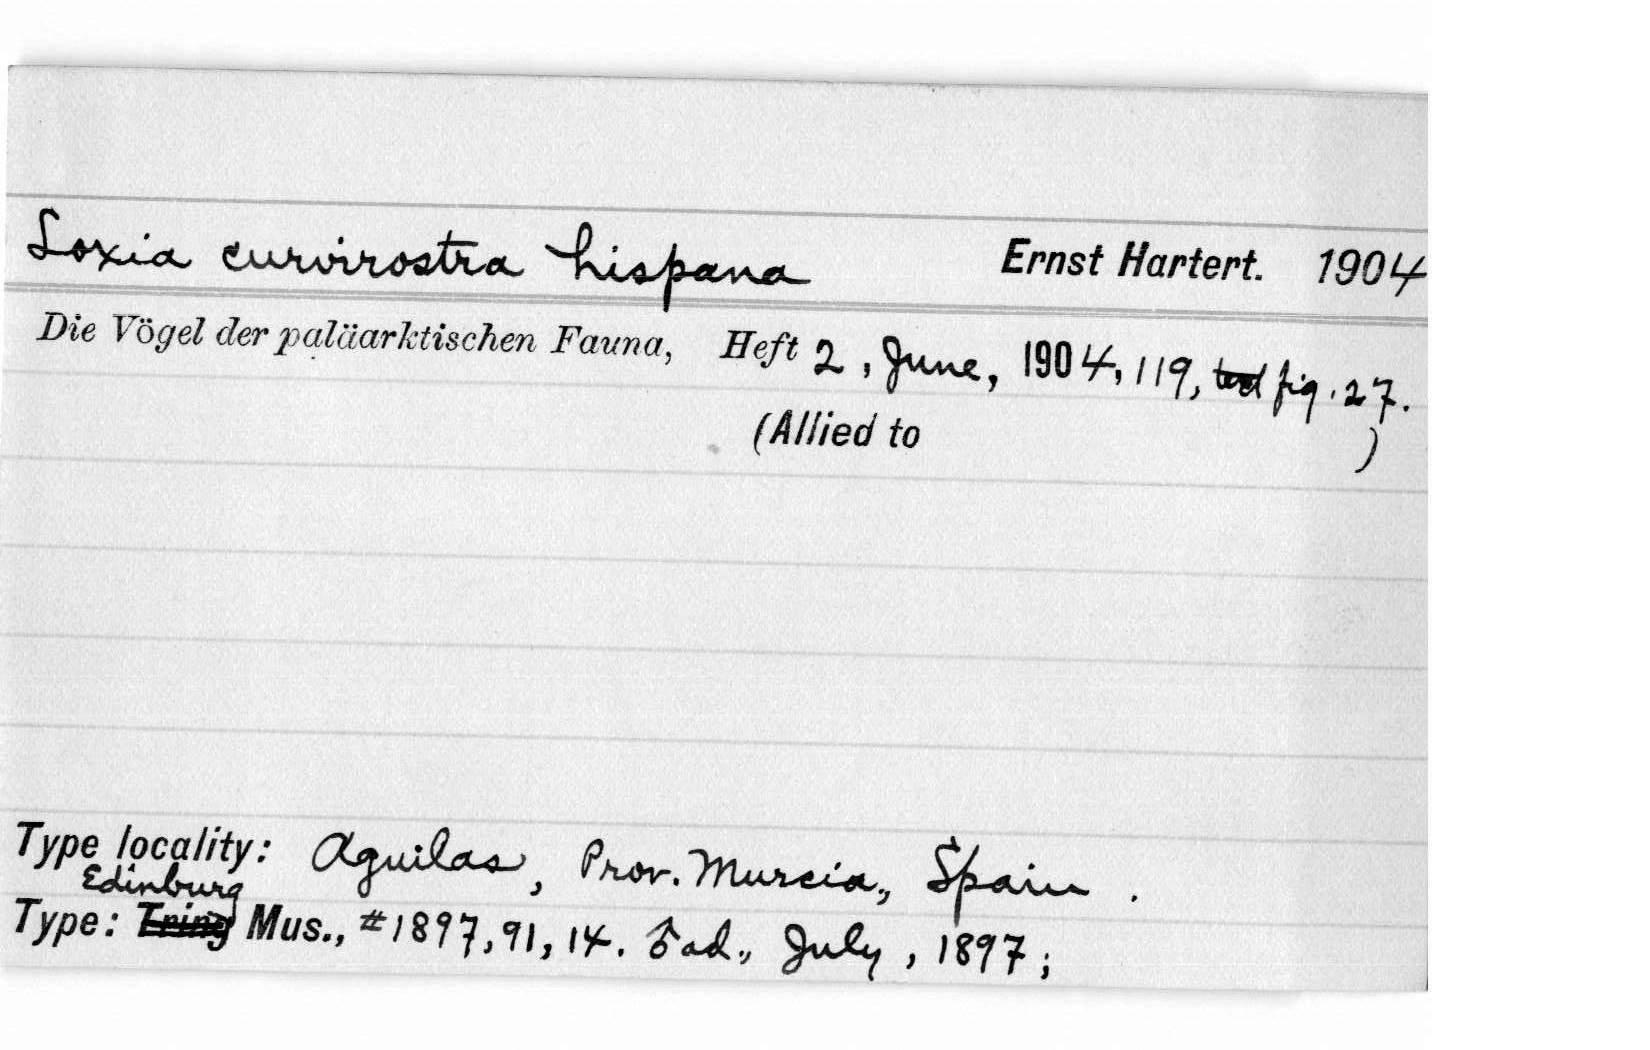 Loxia curvirostra hispana Ernst Hartert. 1904
Die Vögel der paläarktischen Fauna, Heft 2, June, 1904, 119, fig. 27.
(Allied to )
Type locality: Aguilas, Prov. Murcia, Spain.
Edinburg
Type: Tring Mus., #1897, 91, 14. ♂ ad., July, 1897;